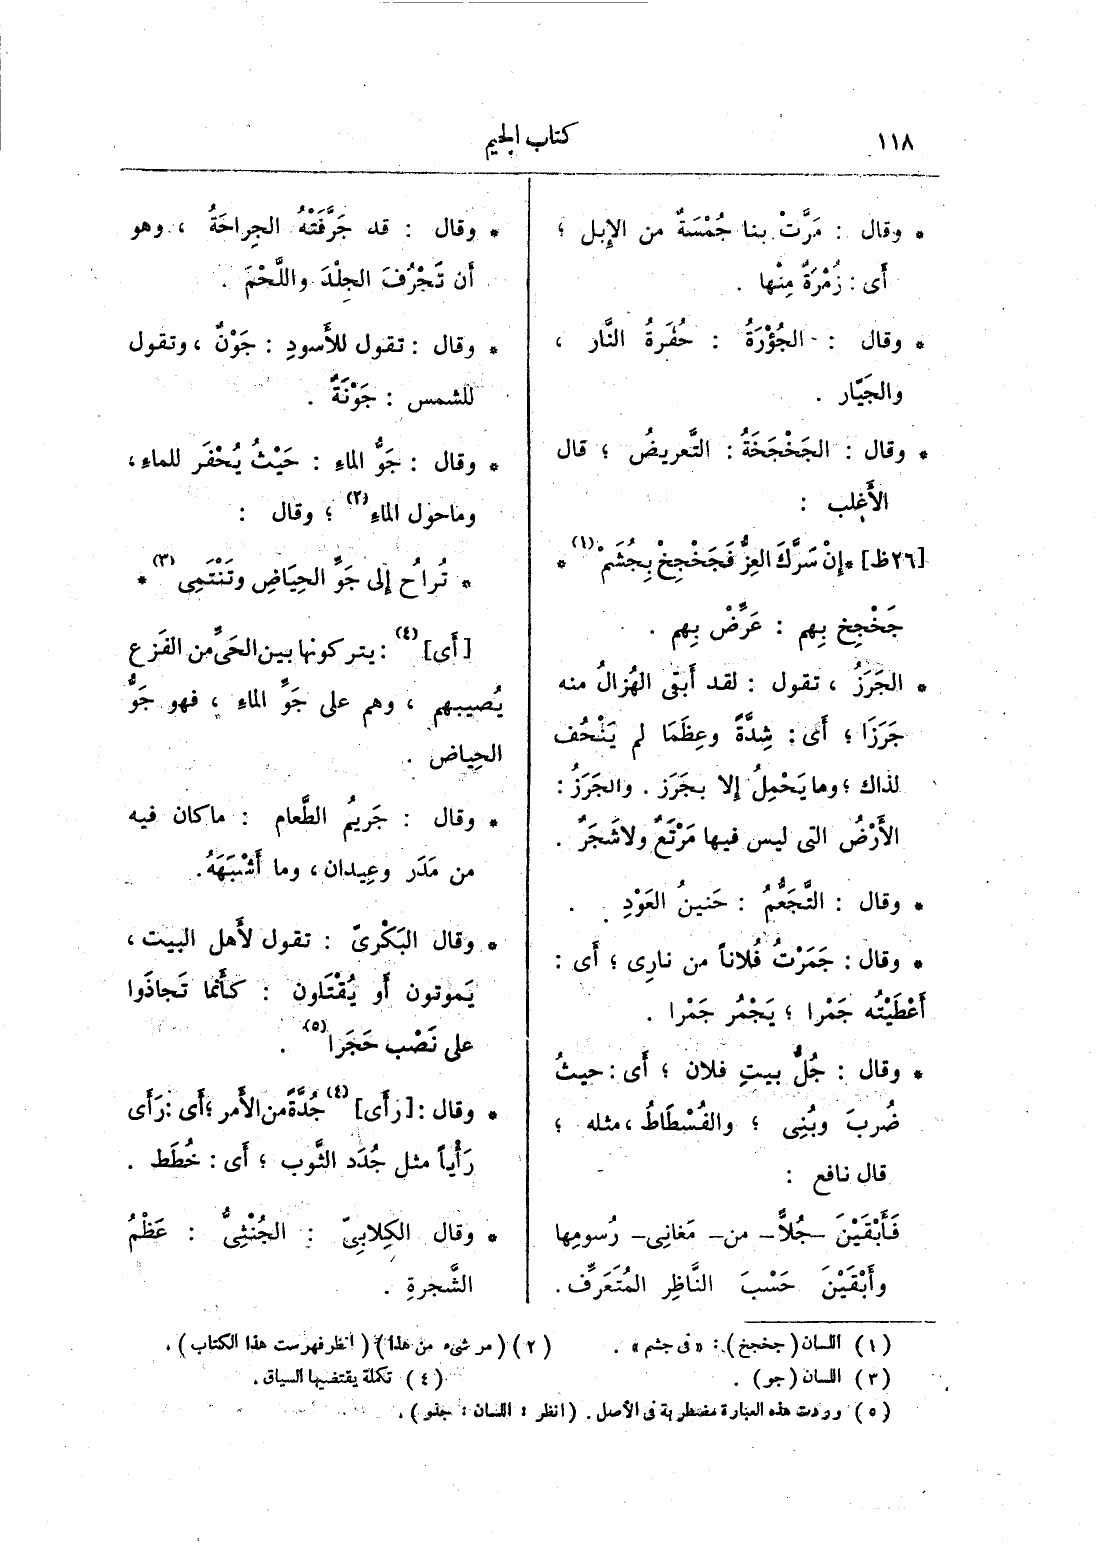 ١١٨
كتاب الجيم
* وقال : مَرَّتْ بنا جُمْسَةٌ من الإبل ؛
أَى : زُمْرَةٌ مِنْها .
* وقال : الجُؤْرَةُ : حُفَرةُ النَّار ،
والجَيّار .
* وقال : الجَخْجَخَةُ : التَّعريضُ ؛ قال
الأَغلب :
[٢٦ظ] *إنْ سَرَّكَ العِزُّ فَجَخْجِخْ بِجُشَمْ(١) *
جَخْجِخ بِهم : عَرِّضْ بِهم .
* الجَرَزُ ، تقول : لقد أَبقى الهُزالُ منه
جَرَزًا ؛ أَى : شِدَّةً وعِظَمًا لم يَنْحُف
لذاك ؛ وما يَحْمِلُ إلا بجَرَز . والجَرَزُ :
الأَرْضُ التى ليس فيها مَرْتَعٌ ولا شَجَرٌ .
* وقال : التَّجَعُّمُ : حَنينُ العَوْدِ .
* وقال : جَمَرْتُ فُلاناً من نارى ؛ أَى :
أَعْطَيْتُه جَمْرا ؛ يَجْمُر جَمْرا .
* وقال : جُلُّ بيتِ فلان ؛ أَى : حيثُ
ضُرِبَ وبُنِى ؛ والفُسْطَاطُ ، مثله ؛
قال نافع :
فَأَبْقَيْنَ -جُلاًّ- من- مَغانِى- رُسومِها
وأَبْقَيْنَ حَسْبَ النَّاظِرِ المُتَعَرِّف .
* وقال : قد جَرَّفَتْهُ الجِراحَةُ ، وهو
أَن تَجْرُفَ الجِلْدَ واللَّحْمَ .
* وقال : تقول للأَسودِ : جَوْنٌ ، وتقول
للشمس : جَوْنَةٌ .
* وقال : جَوُّ الماءِ : حَيْثُ يُحْفَر للماءِ ،
وماحول الماءِ(٢) ؛ وقال :
* تُراحُ إلى جَوِّ الحِيَاضِ وتَنْتَمِى(٣) *
[أَى](٤) : يتركونها بين الحَىِّ من الفَزَع
يُصيبهم ، وهم على جَوِّ الماءِ ، فهو جَوُّ
الحِياض .
* وقال : جَرِيمُ الطَّعام : ماكان فيه
من مَدَر وعِيدان ، وما أَشْبَهَهُ .
* وقال البَكْرىّ : تقول لأَهل البيت ،
يَموتون أَو يُقْتَلون : كأَنما تَجاذَوا
على نَصْب حَجَرا(٥) .
* وقال : [رأَى](٤) جُدَّةً من الأَمر ؛ أَى : رَأَى
رَأْياً مثل جُدَد الثَّوب ؛ أَى : خُطَط .
* وقال الكِلابىّ : الجُنْثِىُّ : عَظْمُ
الشَّجرةِ .
(١) اللسان (جخجخ) : « فى جشم » .
(٢) (مر شىء من هذا) (انظر فهرست هذا الكتاب) .
(٣) اللسان (جو) .
(٤) تكملة يقتضيها السياق .
(٥) وردت هذه العبارة مضطربة فى الأصل . (انظر : اللسان : جذو) .